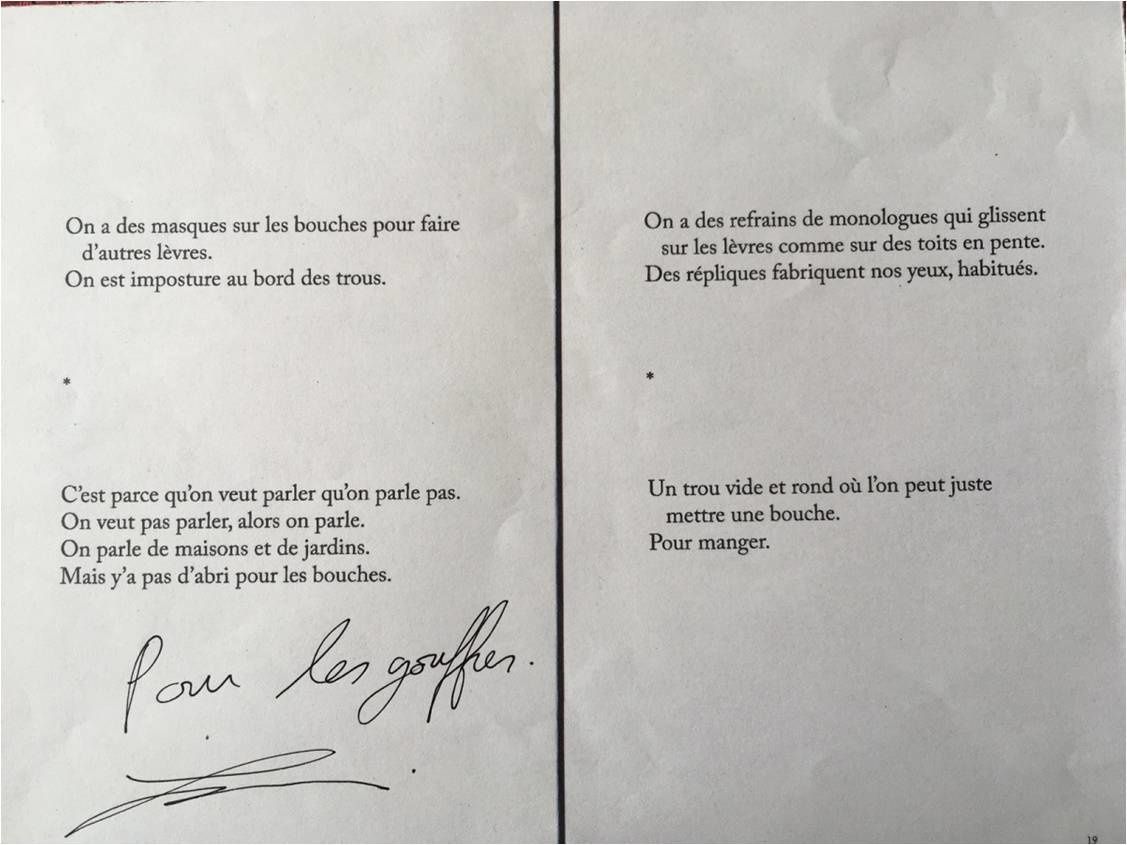 On a des masques sur les bouches pour faire
d’autres lèvres.
On est imposture au bord des trous.
*
C’est parce qu’on veut parler qu’on parle pas.
On veut pas parler, alors on parle.
On parle de maisons et de jardins.
Mais y’a pas d’abri pour les bouches.
Pour les gouffres.
On a des refrains de monologues qui glissent
sur les lèvres comme sur des toits en pente.
Des répliques fabriquent nos yeux, habitués.
*
Un trou vide et rond où l’on peut juste
mettre une bouche.
Pour manger.
19